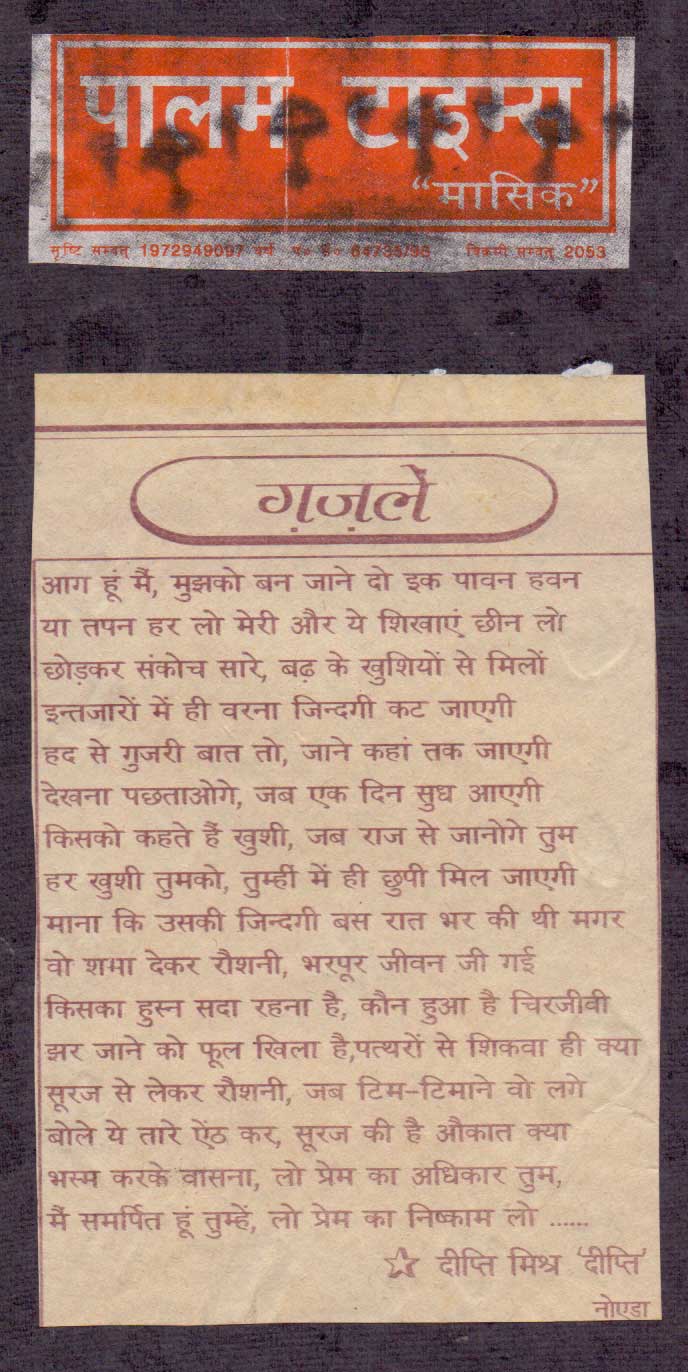 पालम टाइम्स
“मासिक”
सृष्टि सम्वत् 1972949097 वर्ष प० सं० 64735/96 विक्रमी सम्वत् 2053
ग़ज़लें
आग हूं मैं, मुझको बन जाने दो इक पावन हवन
या तपन हर लो मेरी और ये शिखाएं छीन लो
छोड़कर संकोच सारे, बढ़ के खुशियों से मिलों
इन्तजारों में ही वरना जिन्दगी कट जाएगी
हद से गुजरी बात तो, जाने कहां तक जाएगी
देखना पछताओगे, जब एक दिन सुध आएगी
किसको कहते हैं खुशी, जब राज से जानोगे तुम
हर खुशी तुमको, तुम्हीं में ही छुपी मिल जाएगी
माना कि उसकी जिन्दगी बस रात भर की थी मगर
वो शमा देकर रौशनी, भरपूर जीवन जी गई
किसका हुस्न सदा रहना है, कौन हुआ है चिरजीवी
झर जाने को फूल खिला है,पत्थरों से शिकवा ही क्या
सूरज से लेकर रौशनी, जब टिम-टिमाने वो लगे
बोले ये तारे ऐंठ कर, सूरज की है औकात क्या
भस्म करके वासना, लो प्रेम का अधिकार तुम,
मैं समर्पित हूं तुम्हें, लो प्रेम का निष्काम लो ......
☆ दीप्ति मिश्र ‘दीप्ति’
नोएडा